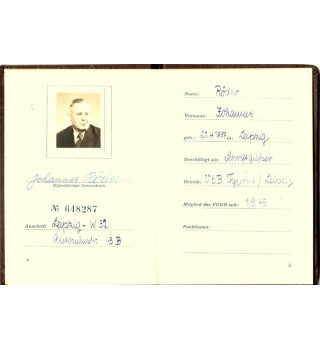 Johannes Röser
Eigenhändige Unterschrift
№ 648287
Anschrift Leipzig-W 32
3B
4
Name: Röser
Vorname: Johannes
geb.: in Leipzig
Beschäftigt als: Schriftgießer
Betrieb: VEB Typoart / Leipzig
Mitglied des FDGB seit: 1945
Funktionen:
5